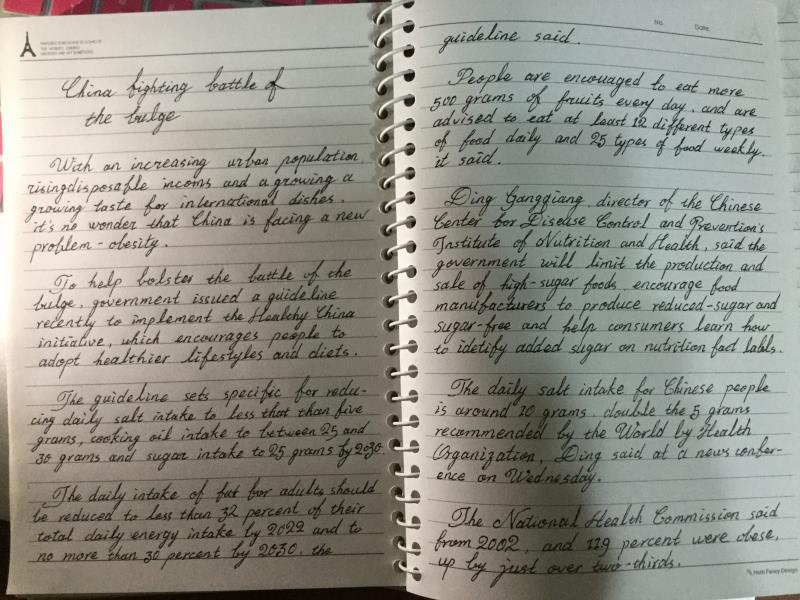 China fighting battle of
the bulge
With an increasing urban population
rising disposable incoms and a growing a
growing taste for international dishes.
it's no wonder that China is facing a new
problem - obesity.
To help bolster the battle of the
bulge, government issued a guideline
recently to implement the Healthy China
initiative, which encourages people to
adopt healthier lifestyles and diets.
The guideline sets specific for redu-
cing daily salt intake to less that than five
grams, cooking oil intake to between 25 and
30 grams and sugar intake to 25 grams by 2030.
The daily intake of fat for adults should
be reduced to less than 32 percent of their
total daily energy intake by 2022 and to
no more than 30 percent by 2030. the
No. Date.
guideline said.
People are encouaged to eat more
500 grams of fruits every day. and are
advised to eat at least 12 different types
of food daily and 25 types of food weekly.
it said.
Ding Gangqiang, director of the Chinese
Center for Disease Control and Prevention's
Institute of Nutrition and Health, said the
government will limit the production and
sale of high-sugar foods. encourage food
manufacturers to produce reduced-sugar and
sugar-free and help consumers learn how
to idetify added sugar on nutrition fact labls.
The daily salt intake for Chinese people
is around 10 grams. double the 5 grams
recommended by the World by Health
Organization, Ding said at a news confer-
ence on Wednesday.
The National Health Commission said
from 2002, and 119 percent were obese,
up by just over two-thirds.